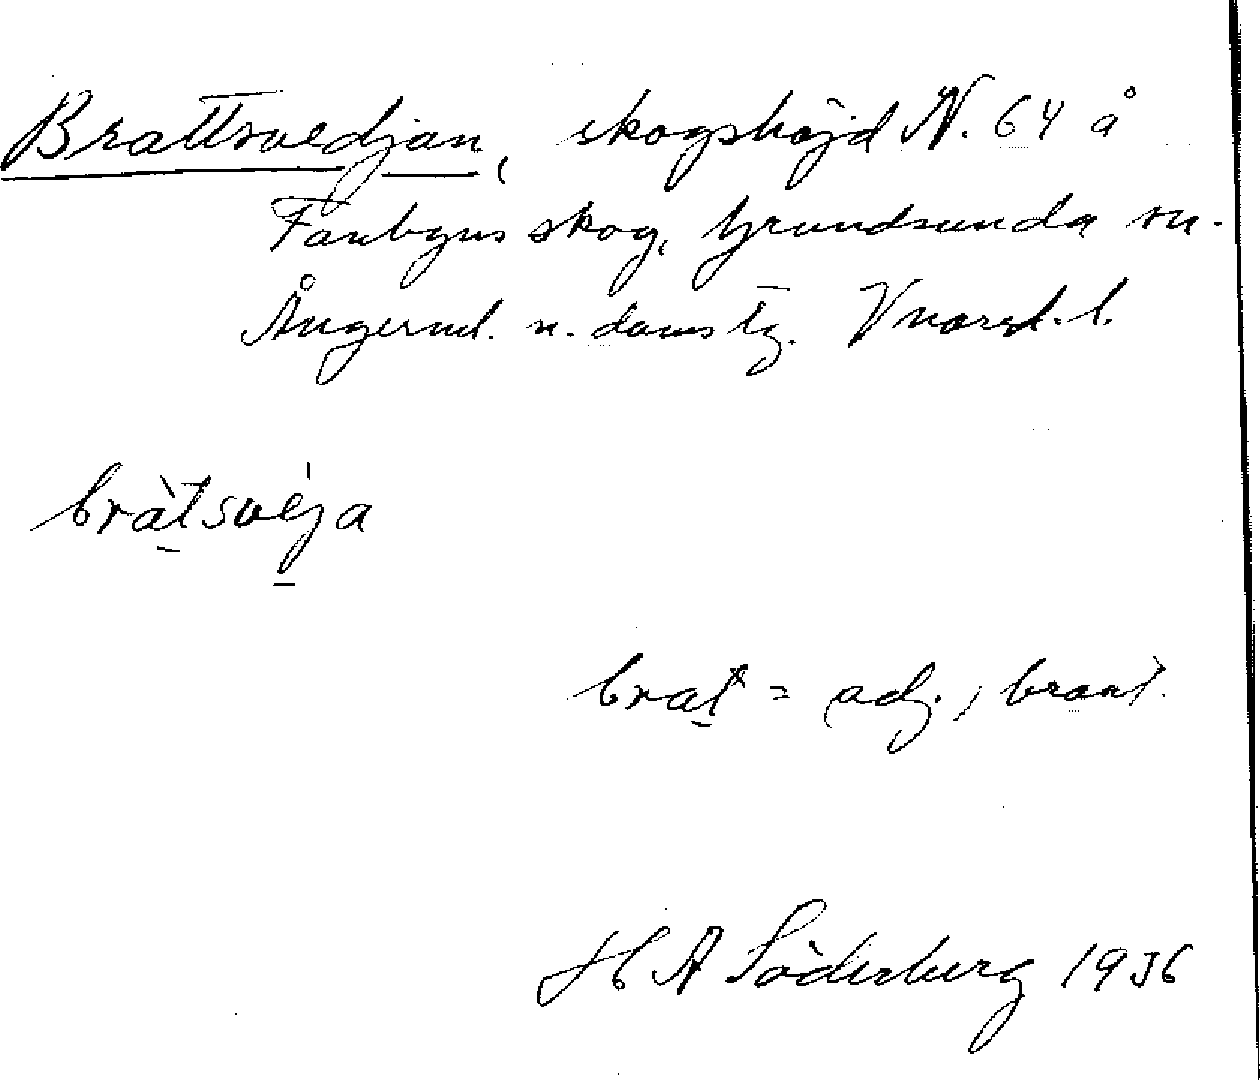 Brattsvedjan, skogshöjd N. 64 å
Fanbyns skog, Grundsunda sn.
Ångerml. n. doms tg. Vnorrl. l.
bràtsvéja
brat = adj., brant.
H A Söderberg 1936